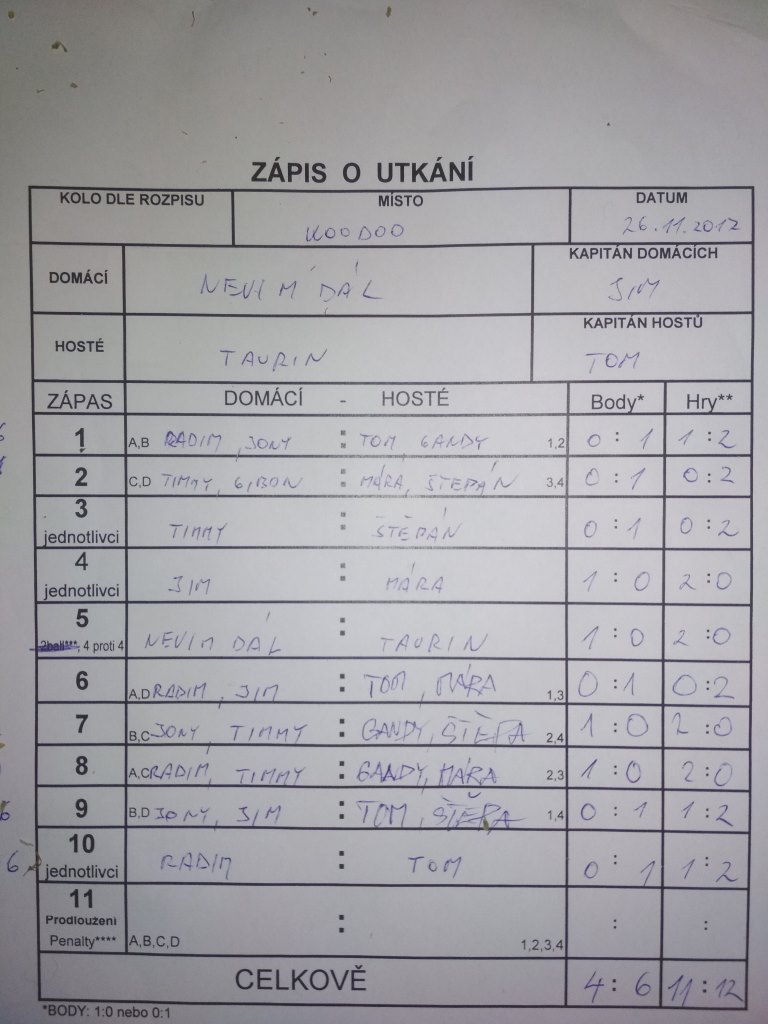 ZÁPIS O UTKÁNÍ
KOLO DLE ROZPISU MÍSTO DATUM
KOODOO 26.11.2017
DOMÁCÍ NEVÍM DÁL KAPITÁN DOMÁCÍCH JIM
HOSTÉ TAURIN KAPITÁN HOSTŮ TOM
ZÁPAS DOMÁCÍ - HOSTÉ Body* Hry**
1 A,B RADIM, JONY : TOM, GANDY 1,2 0 : 1 1 : 2
2 C,D TIMMY, GIBON : MÁRA, ŠTEPÁN 3,4 0 : 1 0 : 2
3 jednotlivci TIMMY : ŠTĚPÁN 0 : 1 0 : 2
4 jednotlivci JIM : MÁRA 1 : 0 2 : 0
5 2ball***, 4 proti 4 NEVÍM DÁL : TAURIN 1 : 0 2 : 0
6 A,D RADIM, JIM : TOM, MÁRA 1,3 0 : 1 0 : 2
7 B,C JONY, TIMMY : GANDY, ŠTĚPA 2,4 1 : 0 2 : 0
8 A,C RADIM, TIMMY : GANDY, MÁRA 2,3 1 : 0 2 : 0
9 B,D JONY, JIM : TOM, ŠTĚPA 1,4 0 : 1 1 : 2
10 jednotlivci RADIM : TOM 0 : 1 1 : 2
11 Prodloužení Penalty**** A,B,C,D : 1,2,3,4 : :
CELKOVĚ 4 : 6 11 : 12
*BODY: 1:0 nebo 0:1